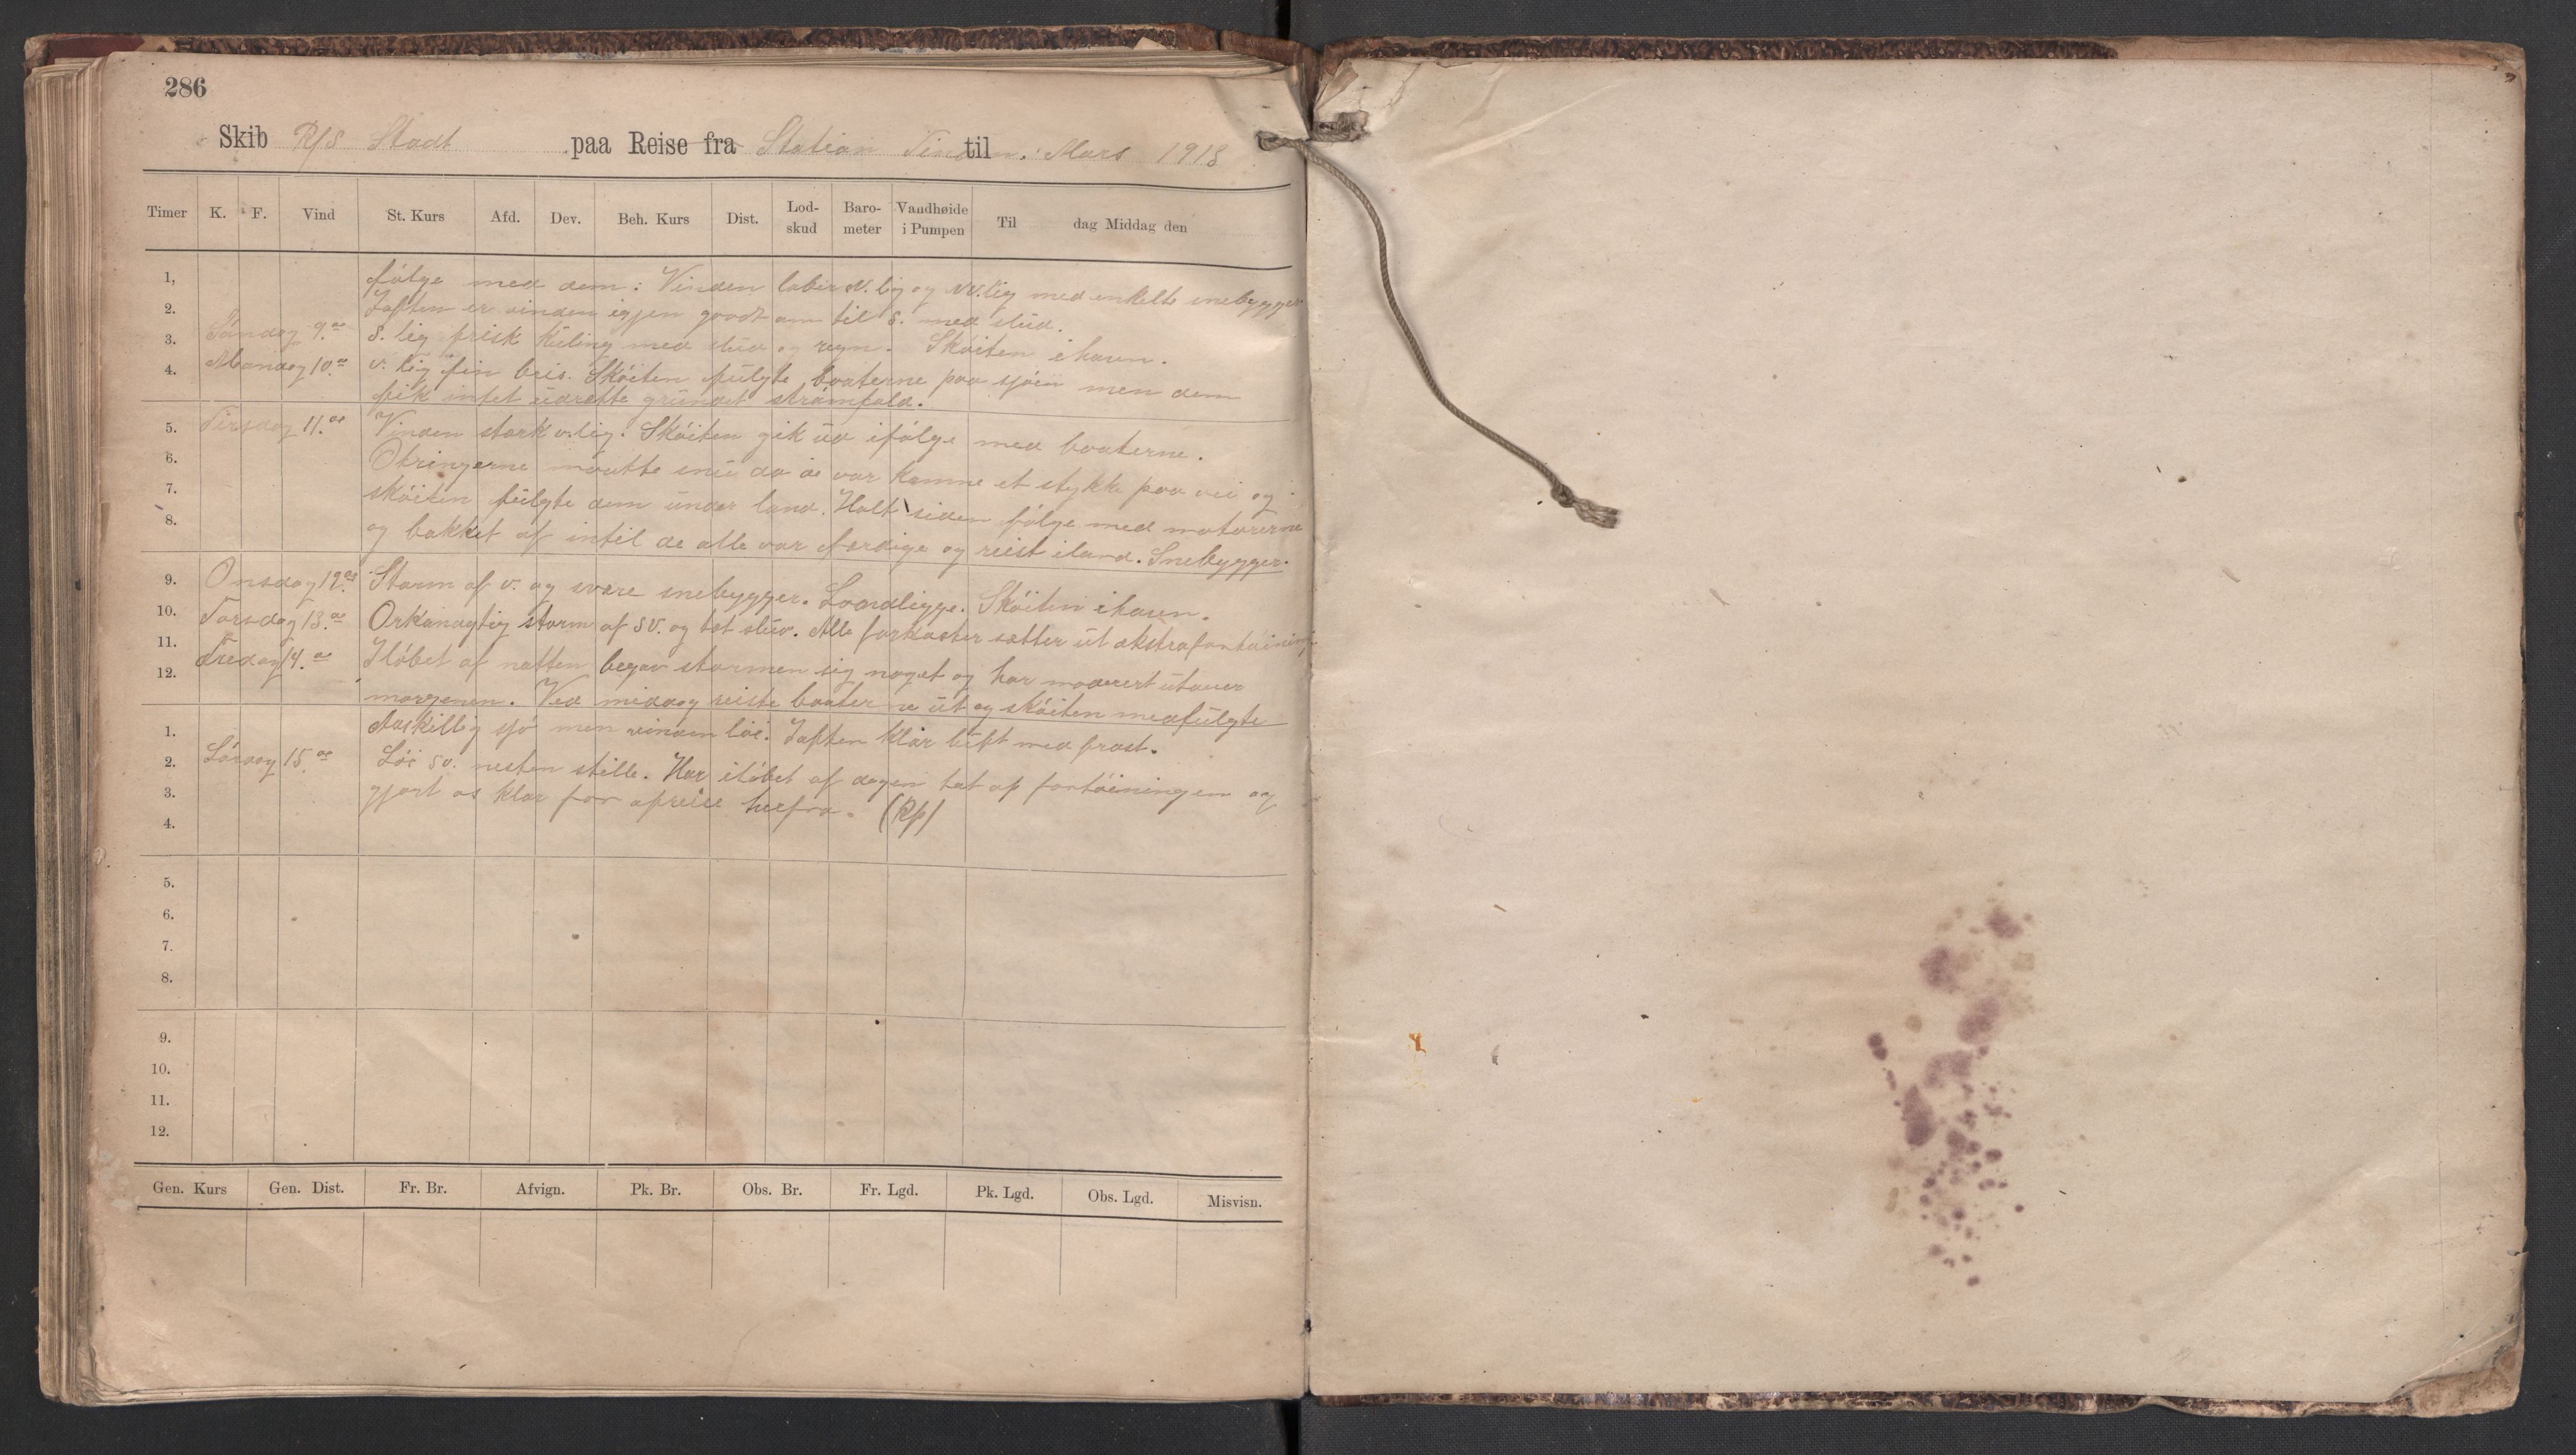 286
Skib R/S Stadt paa Reise fra Station Tinden. til Mars 1918
Timer K. F. Vind St. Kurs Afd. Dev. Beh. Kurs Dist. Lod-skud Baro-meter Vandhøide i Pumpen Til dag Middag den
1, følge med dem. Vinden laber N.lig og NV.lig med enkelte snebygger
2. Iaften er vinden igjen gaadt om til S. med slud.
3. Søndag 9.de S.lig frisk kuling med slud og regn. Skøiten ihavn.
4. Mandag 10.de V.lig fin bris. Skøiten fulgte baaterne paa sjøen men dem
fik intet udrette grundet strømfald.
5. Tirsdag 11.de Vinden stærk v.lig. Skøiten gik ud ifølge med baaterne.
6. Otringerne maatte snu da de var komne et stykke paa vei og
7. skøiten fulgte dem under land. Holt siden følge med motorerne
8. og bakket af intil de alle var færdige og reist iland. Snebygger.
9. Onsdag 12.de Storm af v. og svære snebygger. Landligge. Skøiten ihavn.
10. Torsdag 13.de Orkanagtig storm af SV. og tæt slud. Alle farkoster sætter ut ekstrafortøining.
11. Fredag 14.de Iløbet af natten begav stormen sig noget og har moderert utover
12. morgenen. Ved middag reiste baaterne ut og skøiten medfulgte
1. Adskillig sjø men vinden løi. Iaften klar luft med frost.
2. Lørdag 15.de Løi SV. nesten stille. Har iløbet af dagen tat op fortøiningen og
3. gjort os klar for afreise herfra. (Rp)
4.
5.
6.
7.
8.
9.
10.
11.
12.
Gen. Kurs Gen. Dist. Fr. Br. Afvign. Pk. Br. Obs. Br. Fr. Lgd. Pk. Lgd. Obs. Lgd. Misvisn.